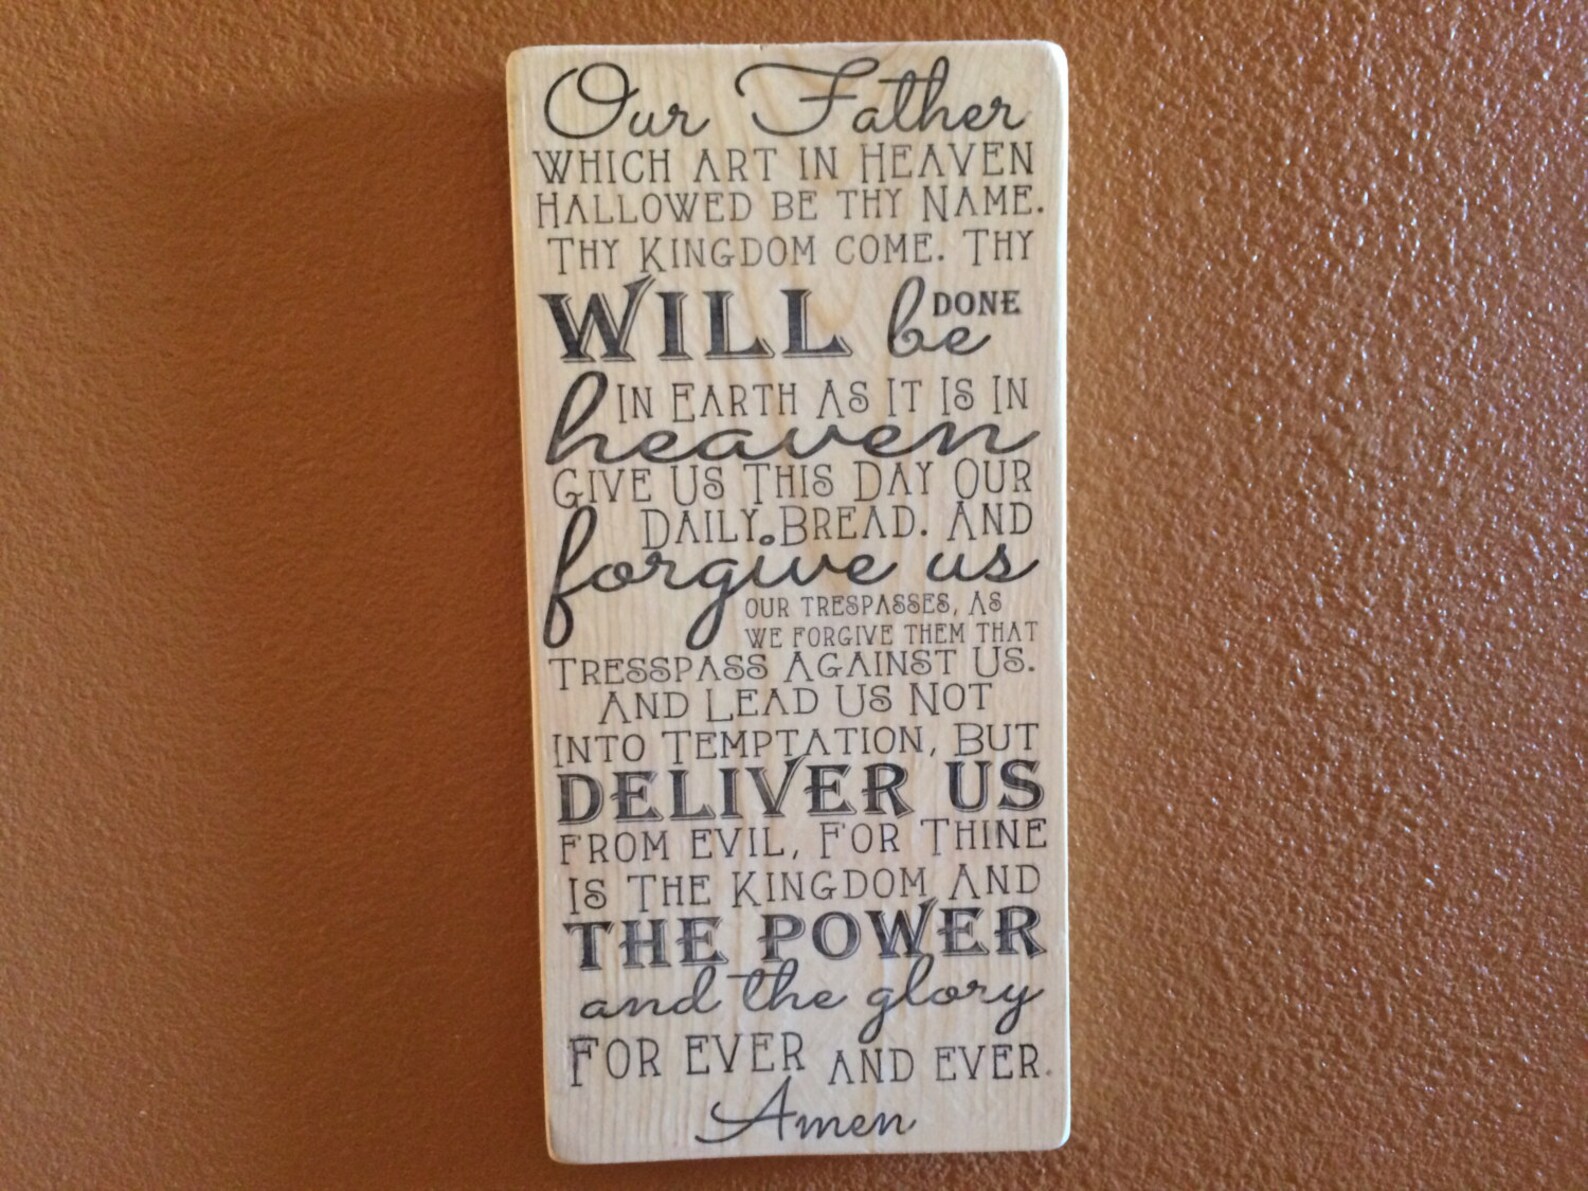 Our Father
WHICH ART IN HEAVEN
HALLOWED BE THY NAME.
THY KINGDOM COME. THY
WILL be DONE
IN EARTH AS IT IS IN
heaven
GIVE US THIS DAY OUR
DAILY BREAD. AND
forgive us
OUR TRESPASSES, AS
WE FORGIVE THEM THAT
TRESSPASS AGAINST US.
AND LEAD US NOT
INTO TEMPTATION, BUT
DELIVER US
FROM EVIL, FOR THINE
IS THE KINGDOM AND
THE POWER
and the glory
FOR EVER AND EVER.
Amen